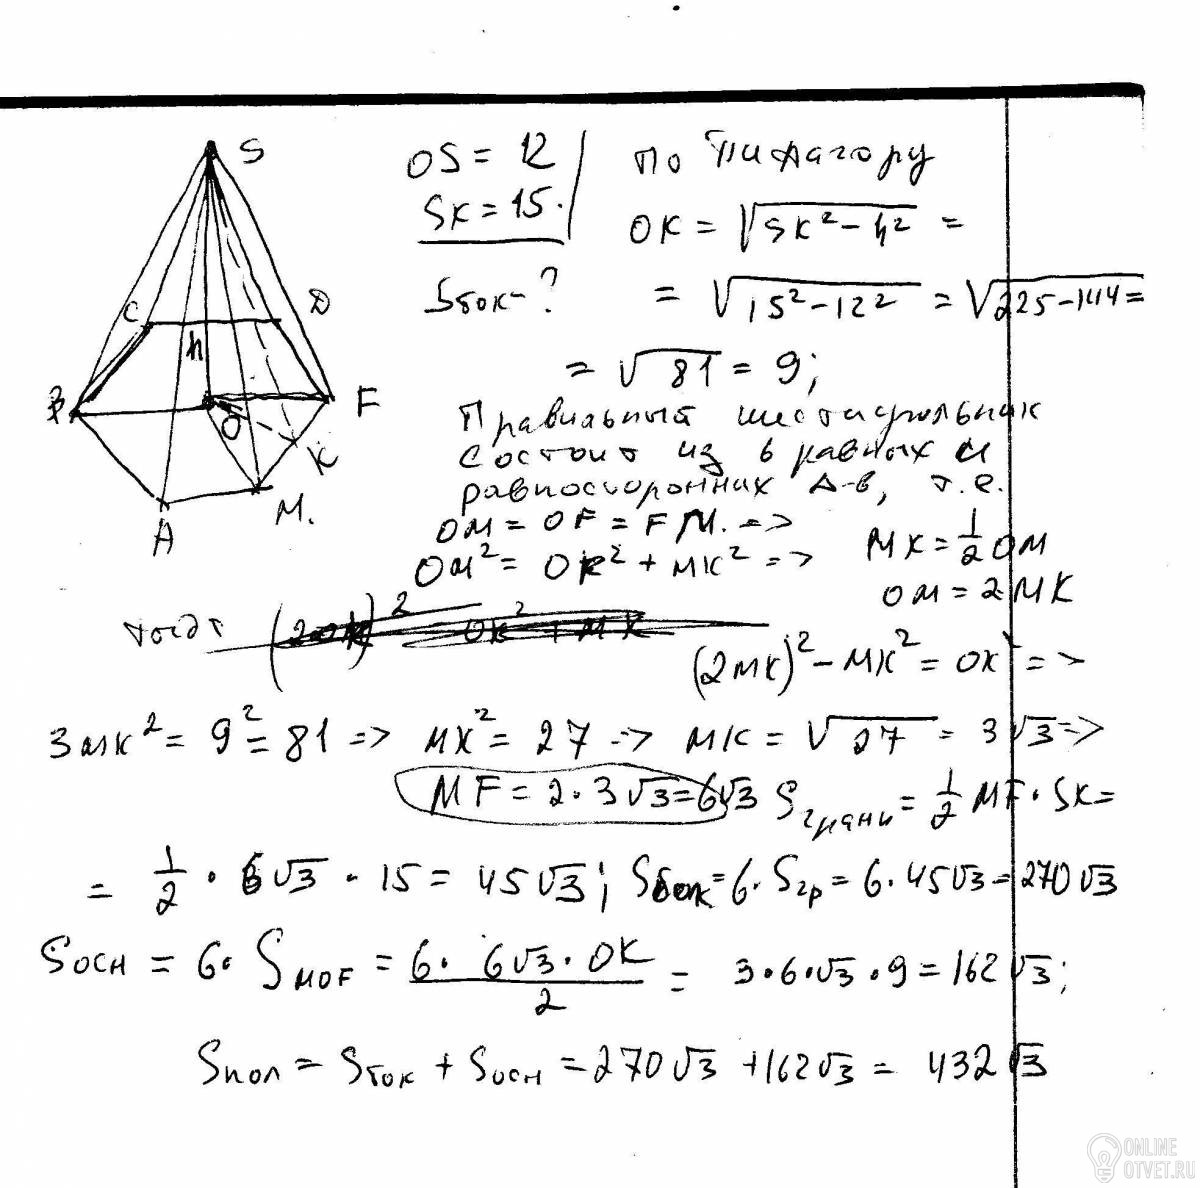 S
OS = 12
SK = 15.
Sбок - ?
По Пифагору
OK = √(SK² - h²) =
= √(15² - 12²) = √(225 - 144) =
= √81 = 9;
C
D
h
B
O
F
K
A
M.
Правильный шестиугольник
состоит из 6 равных и
равносторонних Δ-в, т.е.
OM = OF = FM. =>
OM² = OK² + MK² =>
MK = 1/2 OM
OM = 2MK
тогда
(2MK)² - MK² = OK² =>
3MK² = 9² = 81 => MK² = 27 => MK = √27 = 3√3 =>
MF = 2·3√3 = 6√3 Sграни = 1/2 MF · SK =
= 1/2 · 6√3 · 15 = 45√3; Sбок = 6·Sгр = 6·45√3 = 270√3
Sосн = 6· SMOF = (6· 6√3 · OK)/2 = 3·6·√3·9 = 162√3;
Sпол = Sбок + Sосн = 270√3 + 162√3 = 432√3
ONLINE
OTVET.RU